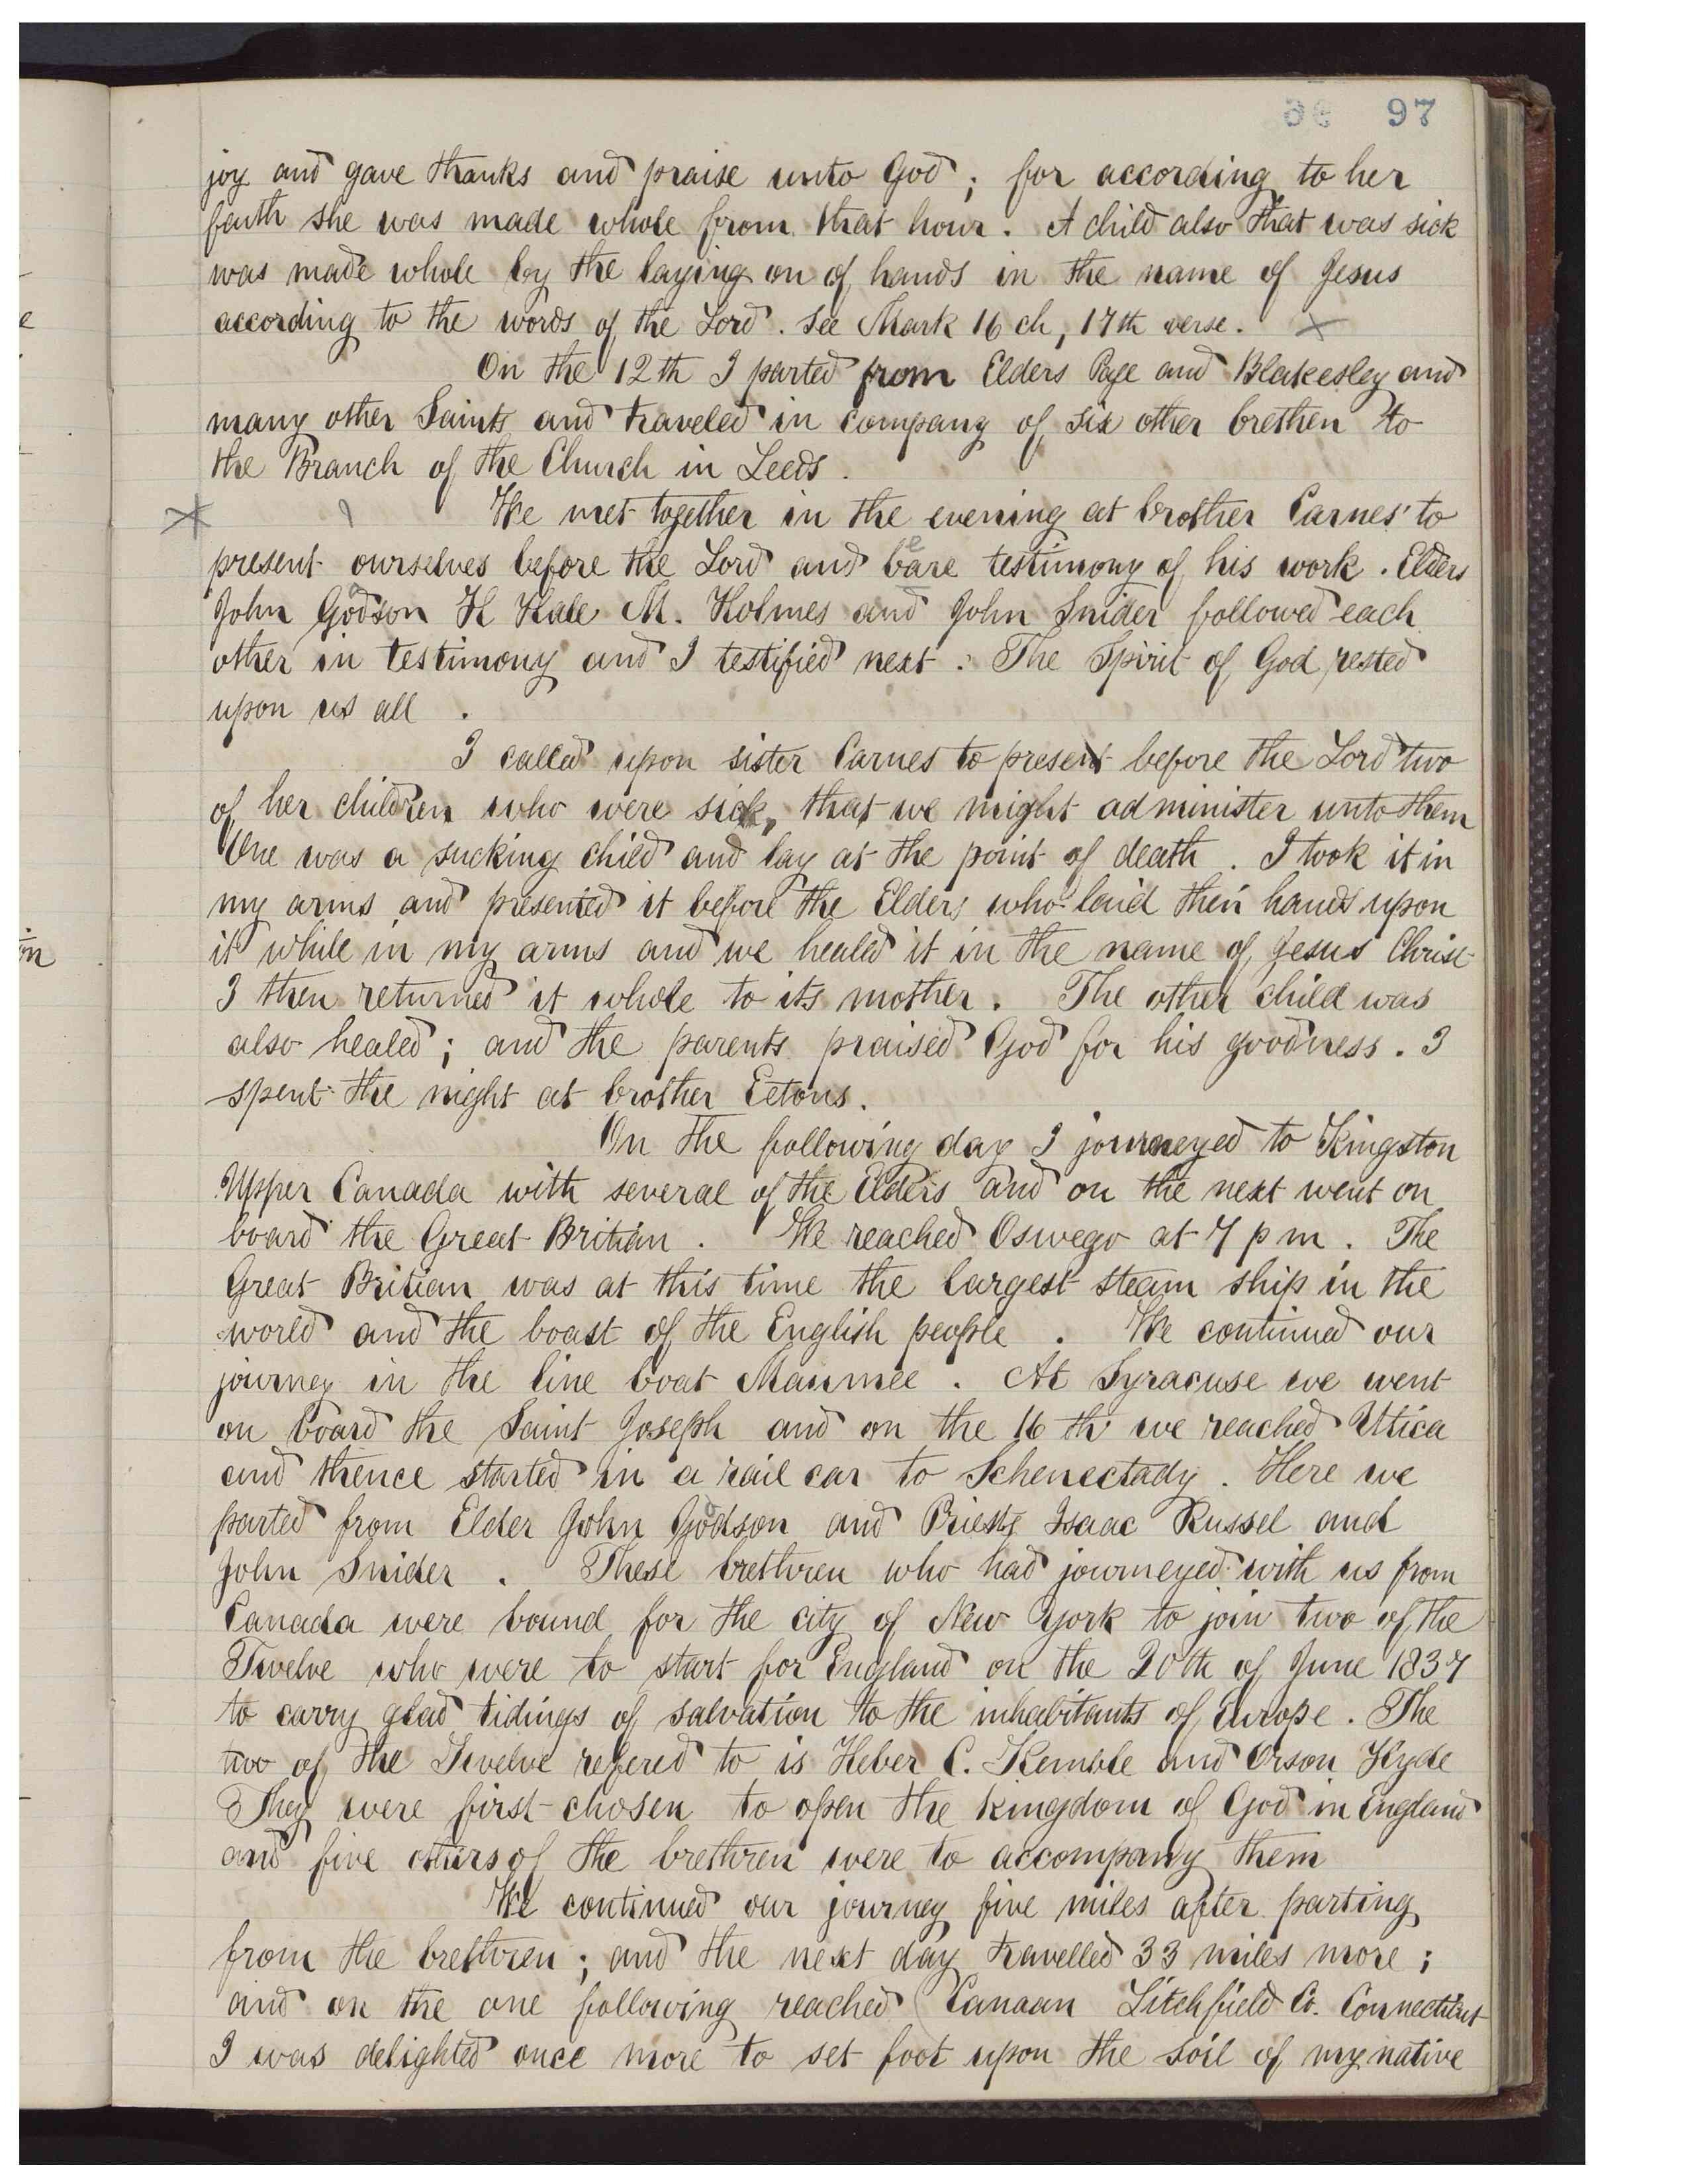 36 97
joy and gave thanks and praise unto God; for according to her
faith she was made whole from that hour. A child also that was sick
was made whole by the laying on of hands in the name of Jesus
according to the words of the Lord. See Mark 16 ch, 17th verse. X
On the 12th I parted from Elders Page and Blakesley and
many other Saints and traveled in company of six other brethen to
the Branch of the Church in Leeds.
We met together in the evening at brother Carnes' to
present ourselves before the Lord and bare testimony of his work. Elders
John Godson H Hale M. Holmes and John Snider followed each
other in testimony and I testified next. The Spirit of God rested
upon us all.
I called upon sister Carnes to present before the Lord two
of her children who were sick, that we might administer unto them
One was a sucking child and lay at the point of death. I took it in
my arms and presented it before the Elders who laid their hands upon
it while in my arms and we healed it in the name of Jesus Christ
I then returned it whole to its mother. The other child was
also healed; and the parents praised God for his goodness. I
spent the night at brother Eetons.
On the following day I journeyed to Kingston
Upper Canada with several of the Elders and on the next went on
board the Great Britian. We reached Oswego at 7 p m. The
Great Britian was at this time the largest steam ship in the
world and the boast of the English people. We continued our
journey in the line boat Maumee. At Syracuse we went
on board the Saint Joseph and on the 16th we reached Utica
and thence started in a rail car to Schenectady. Here we
parted from Elder John Godson and Priests Isaac Russel and
John Snider. These brethren who had journeyed with us from
Canada were bound for the city of New York to join two of the
Twelve who were to start for England on the 20th of June 1837
to carry glad tidings of salvation to the inhabitants of Europe. The
two of the Twelve refered to is Heber C. Kemble and Orson Hyde
They were first chosen to open the kingdom of God in England
and five others of the brethren were to accompany them
We continued our journey five miles after parting
from the brethren; and the next day travelled 33 miles more;
and on the one following reached Canaan Litchfield Co. Connecticut
I was delighted once more to set foot upon the soil of my native